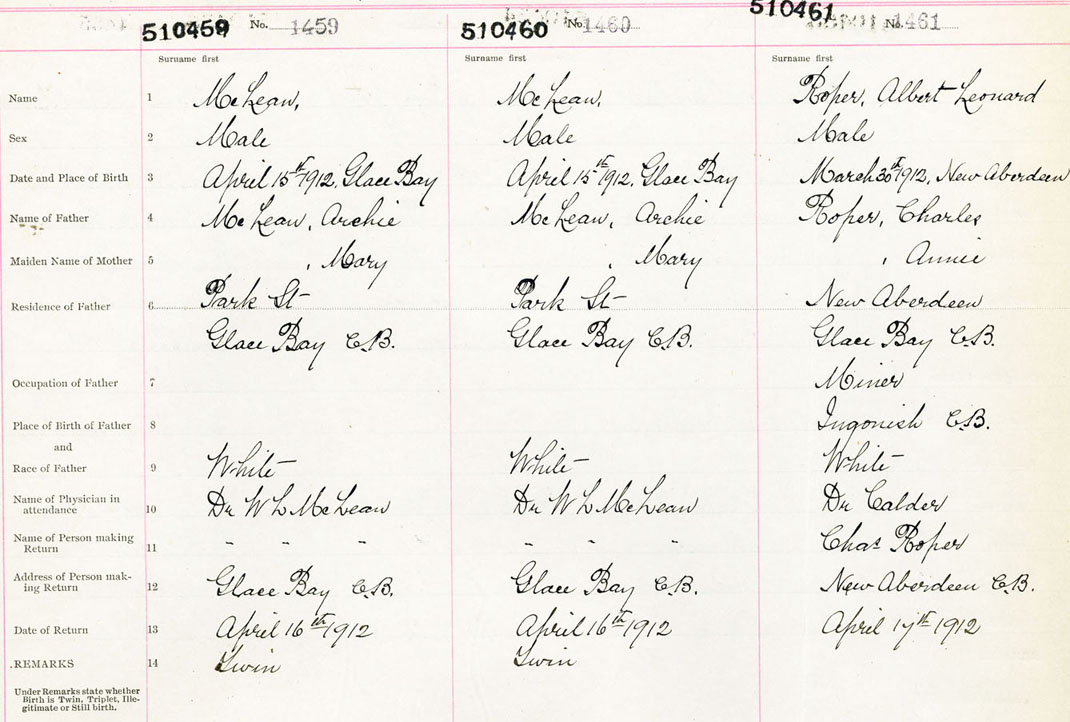 510459 No. 1459 510460 No. 1460 510461 No. 1461
Surname first Surname first Surname first
Name 1 McLean, McLean, Roper, Albert Leonard
Sex 2 Male Male Male
Date and Place of Birth 3 April 15th 1912, Glace Bay April 15th 1912, Glace Bay March 30th 1912, New Aberdeen
Name of Father 4 McLean, Archie McLean, Archie Roper, Charles
Maiden Name of Mother 5 , Mary , Mary , Annie
Residence of Father 6 Park St Park St New Aberdeen
Glace Bay C.B. Glace Bay C.B. Glace Bay C.B.
Occupation of Father 7 Miner
Place of Birth of Father 8 Ingonish C.B.
and
Race of Father 9 White White White
Name of Physician in
attendance 10 Dr W L McLean Dr W L McLean Dr Calder
Name of Person making
Return 11 " " " " " " Chas Roper
Address of Person mak-
ing Return 12 Glace Bay C.B. Glace Bay C.B. New Aberdeen C.B.
Date of Return 13 April 16th 1912 April 16th 1912 April 17th 1912
.REMARKS 14 Twin Twin
Under Remarks state whether
Birth is Twin, Triplet, Ille-
gitimate or Still birth.